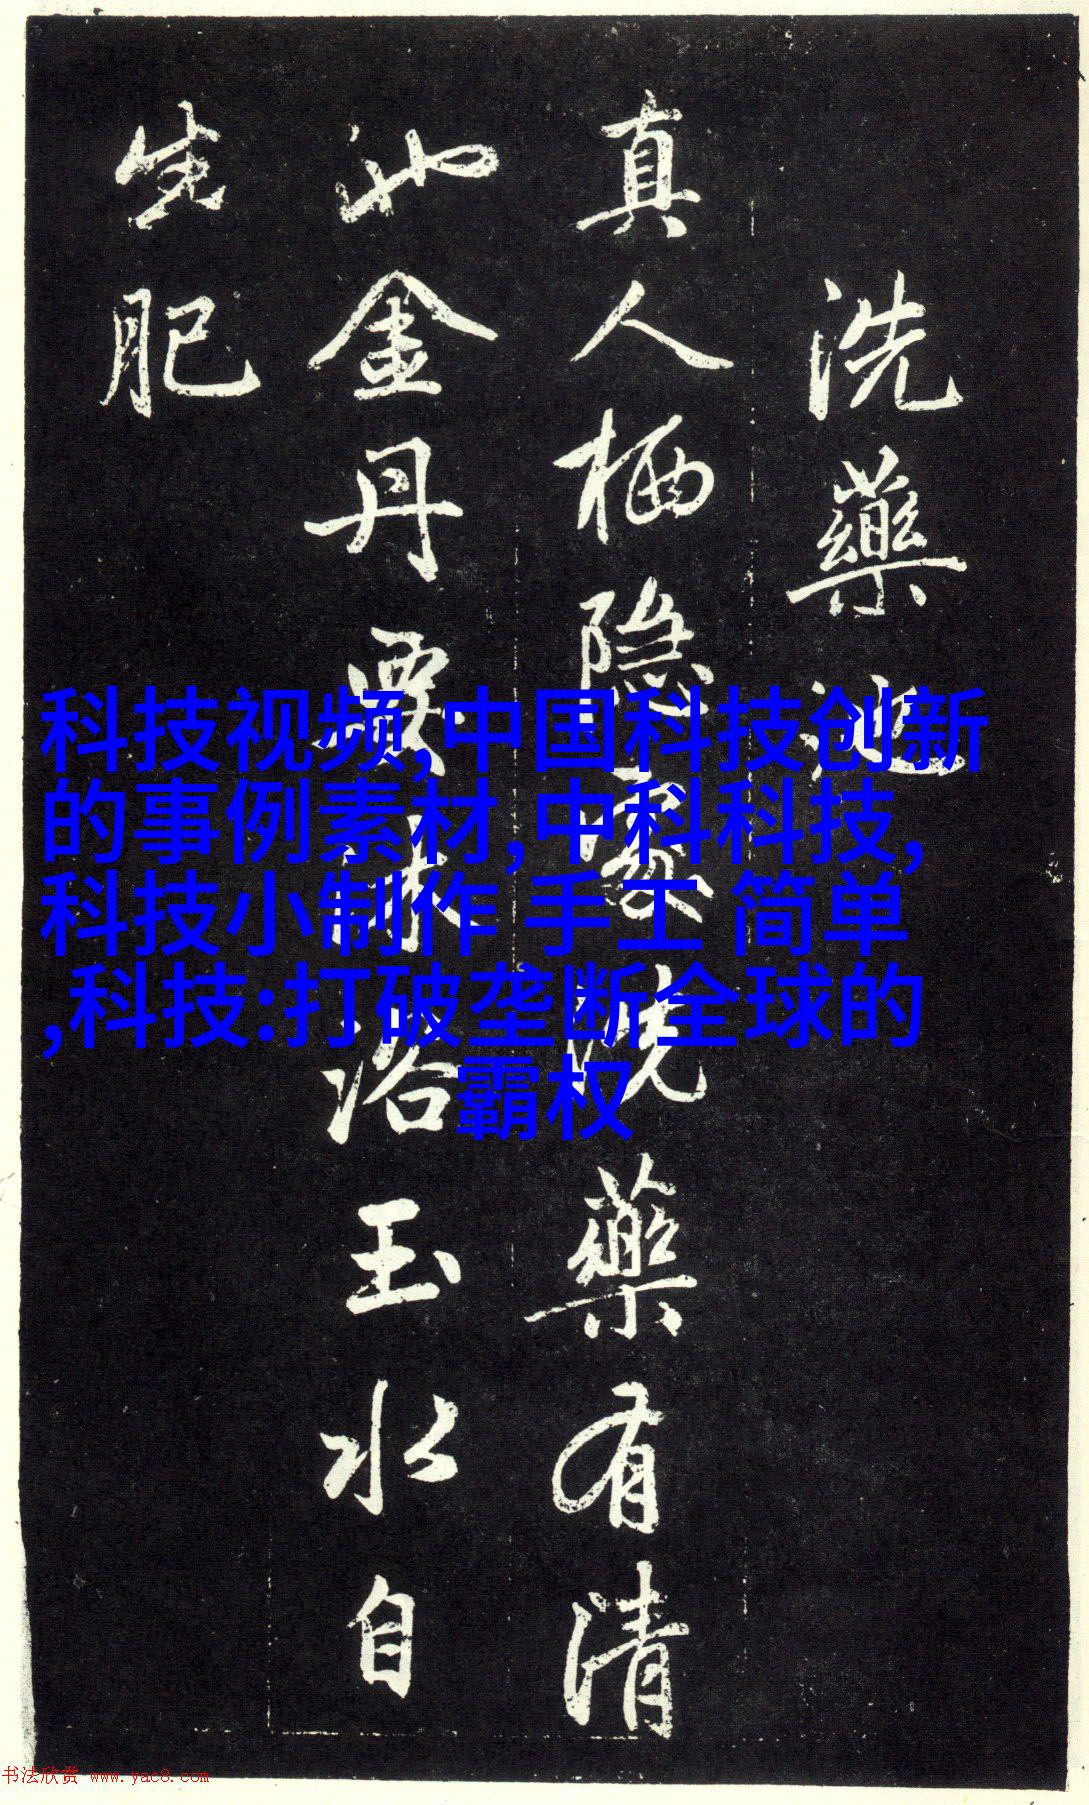 洗藥池
真人栖隱處洗藥有清
池金丹要沐浴玉水自
生肥
科技视频,中国科技创新
的事例素材,中科科技,
科技小制作 手工 简单
,科技:打破垄断全球的
霸权
书法欣赏 www.yac8.com